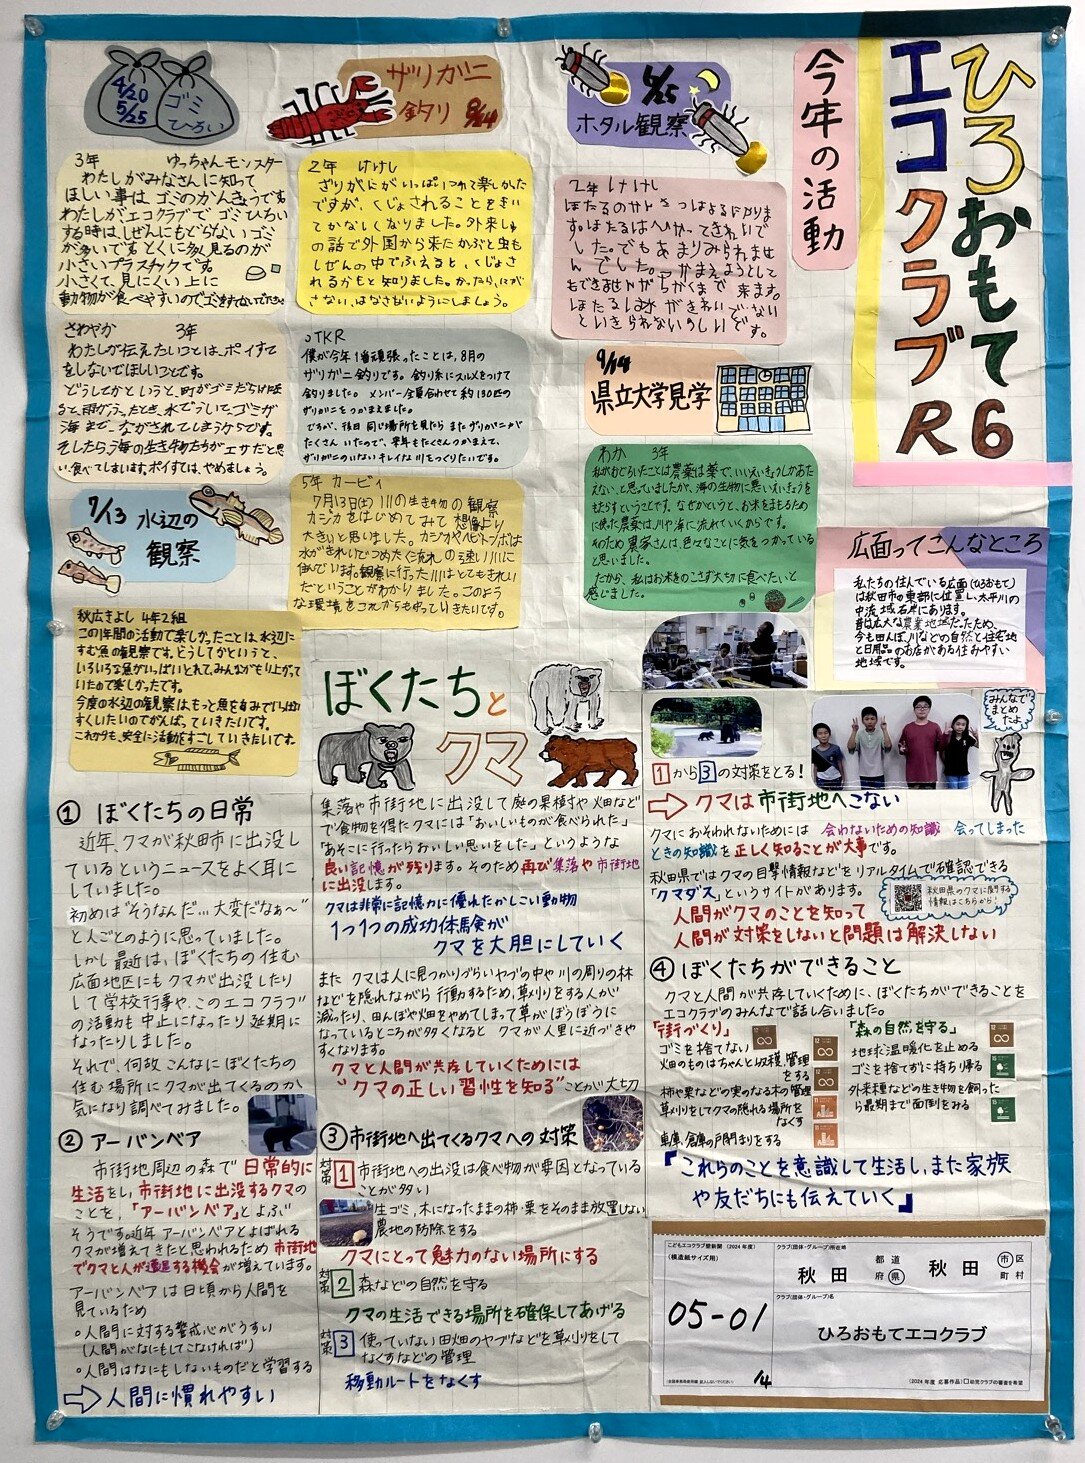 ひろおもて
エコクラブ
R6
今年の活動
6/25
ホタル観察
2年 けけし
ザリガニ
釣り 8/24
2年 けけし
ざりがにがいっぱいつれて楽しかった
ですが、くじょされることをきい
てかなしくなりました。外来しゅ
の話で外国から来たかぶと虫も
しぜんの中でふえると、くじょさ
れるかもと知りました。かったら、にが
さない、はなさないようにしましょう。
4/20
5/25
ゴミ
ひろい
3年 ゆっちゃんモンスター
わたしがみなさんに知って
ほしい事は、ゴミのかんきょうです。
わたしがエコクラブでゴミひろい
する時は、しぜんにもどらないゴミ
が多いです。とくに多く見るのが
小さいプラスチックです。
小さくて、見にくい上に
動物が食べやすいので、ゴミをすてないでください
さわやか 3年
わたしが伝えたいことは、ポイすて
をしないでほしいことです。
どうしてかというと、町がゴミだらけになる
海まで、ながされてしまうからです。
そしたら、海の生き物たちがエサだと思
い、食べてしまいます。ポイすては、やめましょう。
TKR
僕が今年1番頑張ったことは、8月の
ザリガニ釣りです。釣り糸にスルメをつけて
釣りました。メンバー全員合わせて約130匹の
ザリガニをつかまえました。
ですが、後日同じ場所を見たらまたザリガニが
たくさんいたので、来年もたくさんつかまえて、
ザリガニのいないキレイな川をつくりたいです。
9/14
県立大学見学
わか 3年
私がおどろいたことは農薬は薬で、いいえいきょうしかあた
えない、と思っていましたが、海の生物に悪いえいきょうを
もたらすということです。なぜかというと、お米をまもるために
使った農薬は川や海に流れていくからです。
そのため農家さんは、色々なことに気をつかっている
と思いました。
だから、私はお米をのこさず大切に食べたいと
感じました。
7/13 水辺の
観察
5年 カービィ
7月13日(土)川の生き物の観察
カジカをはじめてみて想像より
大きいと思いました。カジカやヘビトンボは
水がきれいでつめたく流れの速い川に
住んでいます。観察に行った川はとてもきれい
だということがわかりました。このよう
な環境をこれからも守っていきたいです。
秋広きよし 4年2組
この1年間の活動で楽しかったことは、水辺に
すむ魚の観察です。どうしてかというと、
いろいろな魚がいっぱいとれて、みんながもり上がって
いたので楽しかったです。
今度の水辺の観察はもっと魚を自分でいっぱい
すくいたいのでがんばっていきたいです。
これからも、安全に活動をすごしていきたいです。
広面ってこんなところ
私たちの住んでいる広面(ひろおもて)
は秋田市の東部に位置し、太平川の
中流域右岸にあります。
昔は広大な農業地域だったため、
今も田んぼ、川などの自然と住宅地
と日用品のお店がある住みやすい
地域です。
みんなで
まとめ
たよ
ぼくたちと
クマ
① ぼくたちの日常
近年、クマが秋田市に出没し
ているというニュースをよく耳に
していました。
初めは“そうなんだ…大変だなぁ〜”
と人ごとのように思っていました。
しかし最近は、ぼくたちの住む
広面地区にもクマが出没したり
して学校行事や、このエコクラブ
の活動も中止になったり延期に
なったりしました。
それで、何故こんなにぼくたちの
住む場所にクマが出てくるのか
気になり調べてみました。
② アーバンベア
市街地周辺の森で日常的に
生活をし、市街地に出没するクマの
ことを、「アーバンベア」とよぶ
そうです。近年アーバンベアとよばれる
クマが増えてきたと思われるため市街地
でクマと人が遭遇する機会が増えています。
アーバンベアは日頃から人間を
見ているため
○人間に対する警戒心がうすい
(人間がなにもしてこなければ)
○人間はなにもしないものだと学習する
⇨人間に慣れやすい
集落や市街地に出没して庭の果樹や畑など
で食物を得たクマには「おいしいものが食べられた」
「あそこに行ったらおいしい思いをした」というような
良い記憶が残ります。そのため再び集落や市街地
に出没します。
クマは非常に記憶力に優れたかしこい動物
1つ1つの成功体験が
クマを大胆にしていく
またクマは人に見つかりづらいヤブの中や川の周りの林
などを隠れながら行動するため、草刈りをする人が
減ったり、田んぼや畑をやめてしまって草がぼうぼうに
なっているところが多くなるとクマが人里に近づきや
すくなります。
クマと人間が共存していくためには
“クマの正しい習性を知る”ことが大切
③市街地へ出てくるクマへの対策
対策1 市街地への出没は食べ物が要因となっている
ことが多い
生ゴミ、木になったままの柿・栗をそのまま放置しない
農地の防除をする
クマにとって魅力のない場所にする
対策2 森などの自然を守る
クマの生活できる場所を確保してあげる
対策3 使っていない田畑のヤブなどを草刈りをして
なくすなどの管理
移動ルートをなくす
1から3の対策をとる!
⇨ クマは市街地へこない
クマにおそわれないためには 会わないための知識 会ってしまった
ときの知識を正しく知ることが大事です。
秋田県ではクマの目撃情報などをリアルタイムで確認できる
「クマダス」というサイトがあります。
秋田県のクマに関する
情報はこちらから!
人間がクマのことを知って
人間が対策をしないと問題は解決しない
④ ぼくたちができること
クマと人間が共存していくために、ぼくたちができることを
エコクラブのみんなで話し合いました。
「街づくり」
ゴミを捨てない
畑のものはちゃんと収穫、管理
をする
柿や栗などの実のなる木の管理
草刈りをしてクマの隠れる場所を
なくす
車庫、倉庫の戸閉まりをする
「森の自然を守る」
地球温暖化を止める
ゴミを捨てずに持ち帰る
外来種などの生き物を飼った
ら最期まで面倒をみる
『これらのことを意識して生活し、また家族
や友だちにも伝えていく』
こどもエコクラブ壁新聞(2024年度)
(模造紙サイズ用)
05-01
クラブ(団体・グループ)所在地
秋田 都道府県 秋田 市区町村
クラブ(団体・グループ)名
ひろおもてエコクラブ